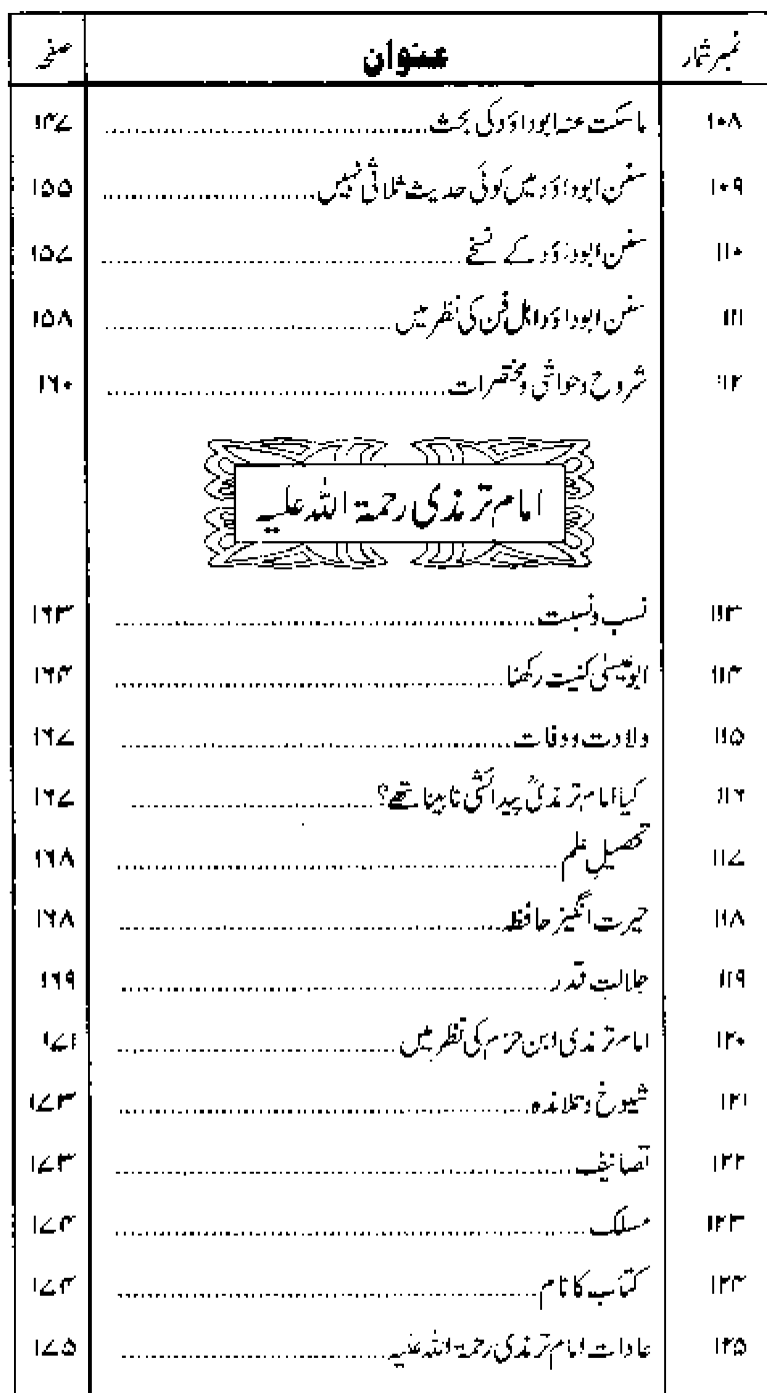 نمبر شمار عنوان صفحہ
۱۰۸ ماسکت عنہ ابوداؤد کی بحث ۱۴۷
۱۰۹ سنن ابوداؤد میں کوئی حدیث ثلاثی نہیں ۱۵۵
۱۱۰ سنن ابوداؤد کے نسخے ۱۵۷
۱۱۱ سنن ابوداؤد اہل فن کی نظر میں ۱۵۸
۱۱۲ شروح وحواشی ومختصرات ۱۶۰
امام ترمذی رحمۃ اللہ علیہ
۱۱۳ نسب ونسبت ۱۶۳
۱۱۴ ابوعیسیٰ کنیت رکھنا ۱۶۴
۱۱۵ ولادت ووفات ۱۶۷
۱۱۶ کیا امام ترمذیؒ پیدائشی نابینا تھے؟ ۱۶۷
۱۱۷ تحصیل علم ۱۶۸
۱۱۸ حیرت انگیز حافظہ ۱۶۸
۱۱۹ جلالت قدر ۱۶۹
۱۲۰ امام ترمذی ابن حزم کی نظر میں ۱۷۱
۱۲۱ شیوخ وتلامذہ ۱۷۳
۱۲۲ تصانیف ۱۷۳
۱۲۳ مسلک ۱۷۴
۱۲۴ کتاب کا نام ۱۷۴
۱۲۵ عادات امام ترمذی رحمۃ اللہ علیہ ۱۷۵